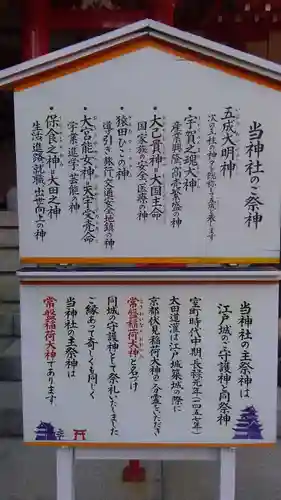 当神社のご祭神
五成大明神
次の五社の神々を総称して来ます
・宇賀之魂大神
産業興隆 商売繁盛の神
・大己貴神＝大国主命
国家族の安全・医療の神
・猿田ひこの神
道引き・旅行・交通安全・地鎮の神
・大宮能女神＝天宇受売命
学業進学・芸能の神
・保食之神＝大田之神
生活・進路・就職・出世向上の神
当神社の主祭神は
江戸城のご守護神と同祭神
室町時代中期・長禄元年（一四五七年）
太田道灌は江戸城築城の際に
京都伏見稲荷大神のご分霊をいただき
常盤稲荷大神と名付け
同城の守護神として祭祀いたしました
ご縁あって奇しくも同じく
当神社の主祭神は
常盤稲荷大神であります